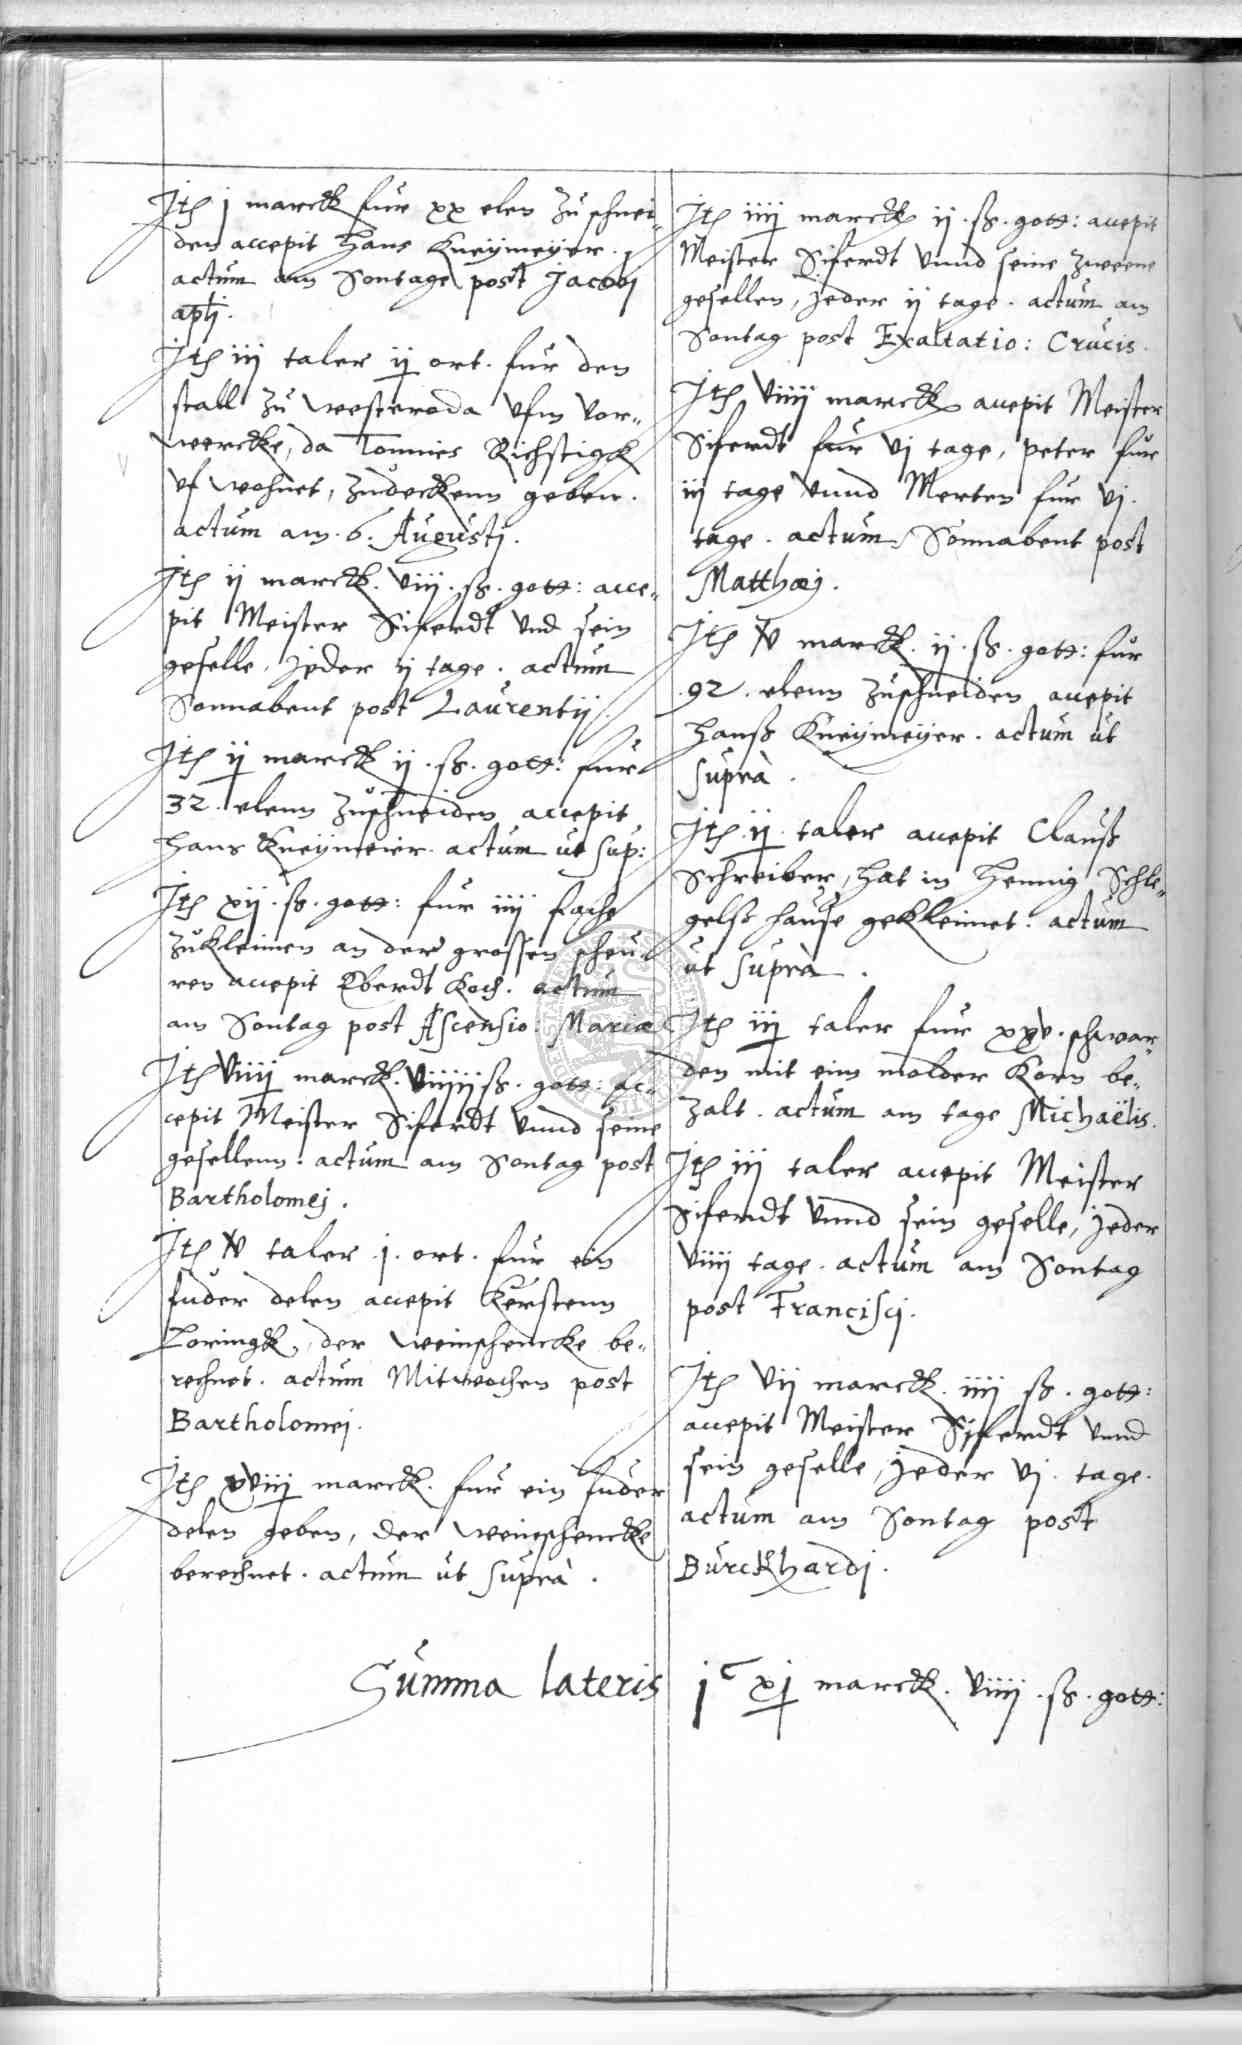 Jtē j marck fur xx elen zuschnei-
den accepit Hans Kneymeyer.
actum am Sontage post Jacobj
aplj.
Jtē iij taler ij ort. fur den
stall zu Westeroda vfm Vor-
wercke, da Tonnies Richstigk
vf wohnet, zudeckenn geben.
actum am .6. Augustj.
Jtē ij marck. viij. ß. gott: acce-
pit Meister Siferdt vnd sein
geselle, jeder ij tage. actum
Sonnabent post Laurentij.
Jtē ij marck ij. ß. gott: fur
32. elenn zuschneiden accepit
Hans Kneymeier. actum ut sup:
Jtē xij. ß. gott: fur iiij fache
zukleimen an der grossen scheu-
ren accepit Eberdt Koch. actum
am Sontag post Ascensio: Mariæ
Jtē viiij marck. ß. gott: ac-
cepit Meister Siferdt vnnd seine
gesellenn. actum am Sontag post
Bartholomej.
Jtē taler .j. ort. fur ein
fuder delen accepit Kerstenn
Loringk, der weinschencke be-
rechnet. actum Mitwochen post
Bartholomej.
Jtē xviij marck. fur ein fuder
delen geben, der weinschencke
berechnet. actum ut suprà.
Jtē iiij marck ij. ß. gott: accepit
Meister Siferdt vnnd seine zweene
gesellen, jeder ij tage. actum am
Sontag post Exaltatio: Crucis.
Jtē viiij marck accepit Meister
Siferdt fur vj tage, Peter fur
iij tage vnnd Merten fur vj.
tage. actum Sonnabent post
Matthæj.
Jtē marck. ij. ß. gott: fur
.92. elenn zuschneiden accepit
Hanß Kneymeyer. actum ut
suprà.
Jtē .ij. taler accepit Clauß
Schreiber, hat in Hennig Schle-
gelß hause gekleimet. actum
ut suprà.
Jtē iij taler fur xxv. schwar-
den mit ein molder Korn be-
zalt. actum am tage Michaëlis.
Jtē iij taler accepit Meister
Siferdt vnnd sein geselle, jeder
viiij tage. actum am Sontag
post Franciscj.
Jtē vij marck. iiij ß. gott:
accepit Meister Siferdt vnnd
sein geselle, jeder vj. tage.
actum am Sontag post
Burckhardj.
Summa lateris j c xj marck. viiij. ß. gott: